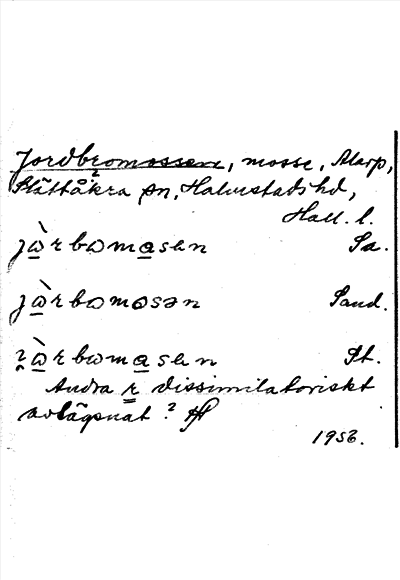 Jordbromossen, mosse, Alarp,
Slättåkra sn, Halmstads hd,
Hall. l.
jàrbomasen Sa.
jàrbomosən Sand.
jàrbomasen St.
Andra r dissimilatoriskt
avlägsnat?
1956.